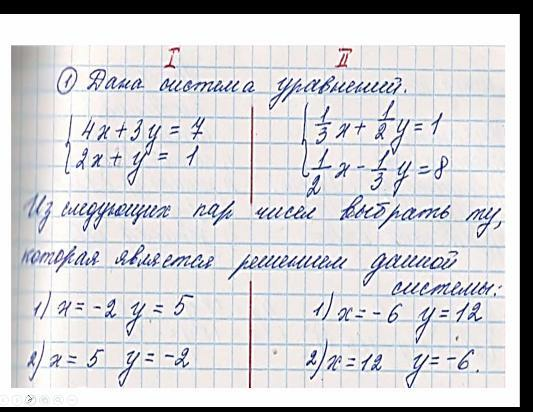 I II
① Дана система уравнений.
{4x+3y=7 {1/3 x+1/2 y=1
{2x+y=1 {1/2 x-1/3 y=8
Из следующих пар чисел выбрать ту,
которая является решением данной
системы:
1) x=-2 y=5 1) x=-6 y=12
2) x=5 y=-2 2) x=12 y=-6.